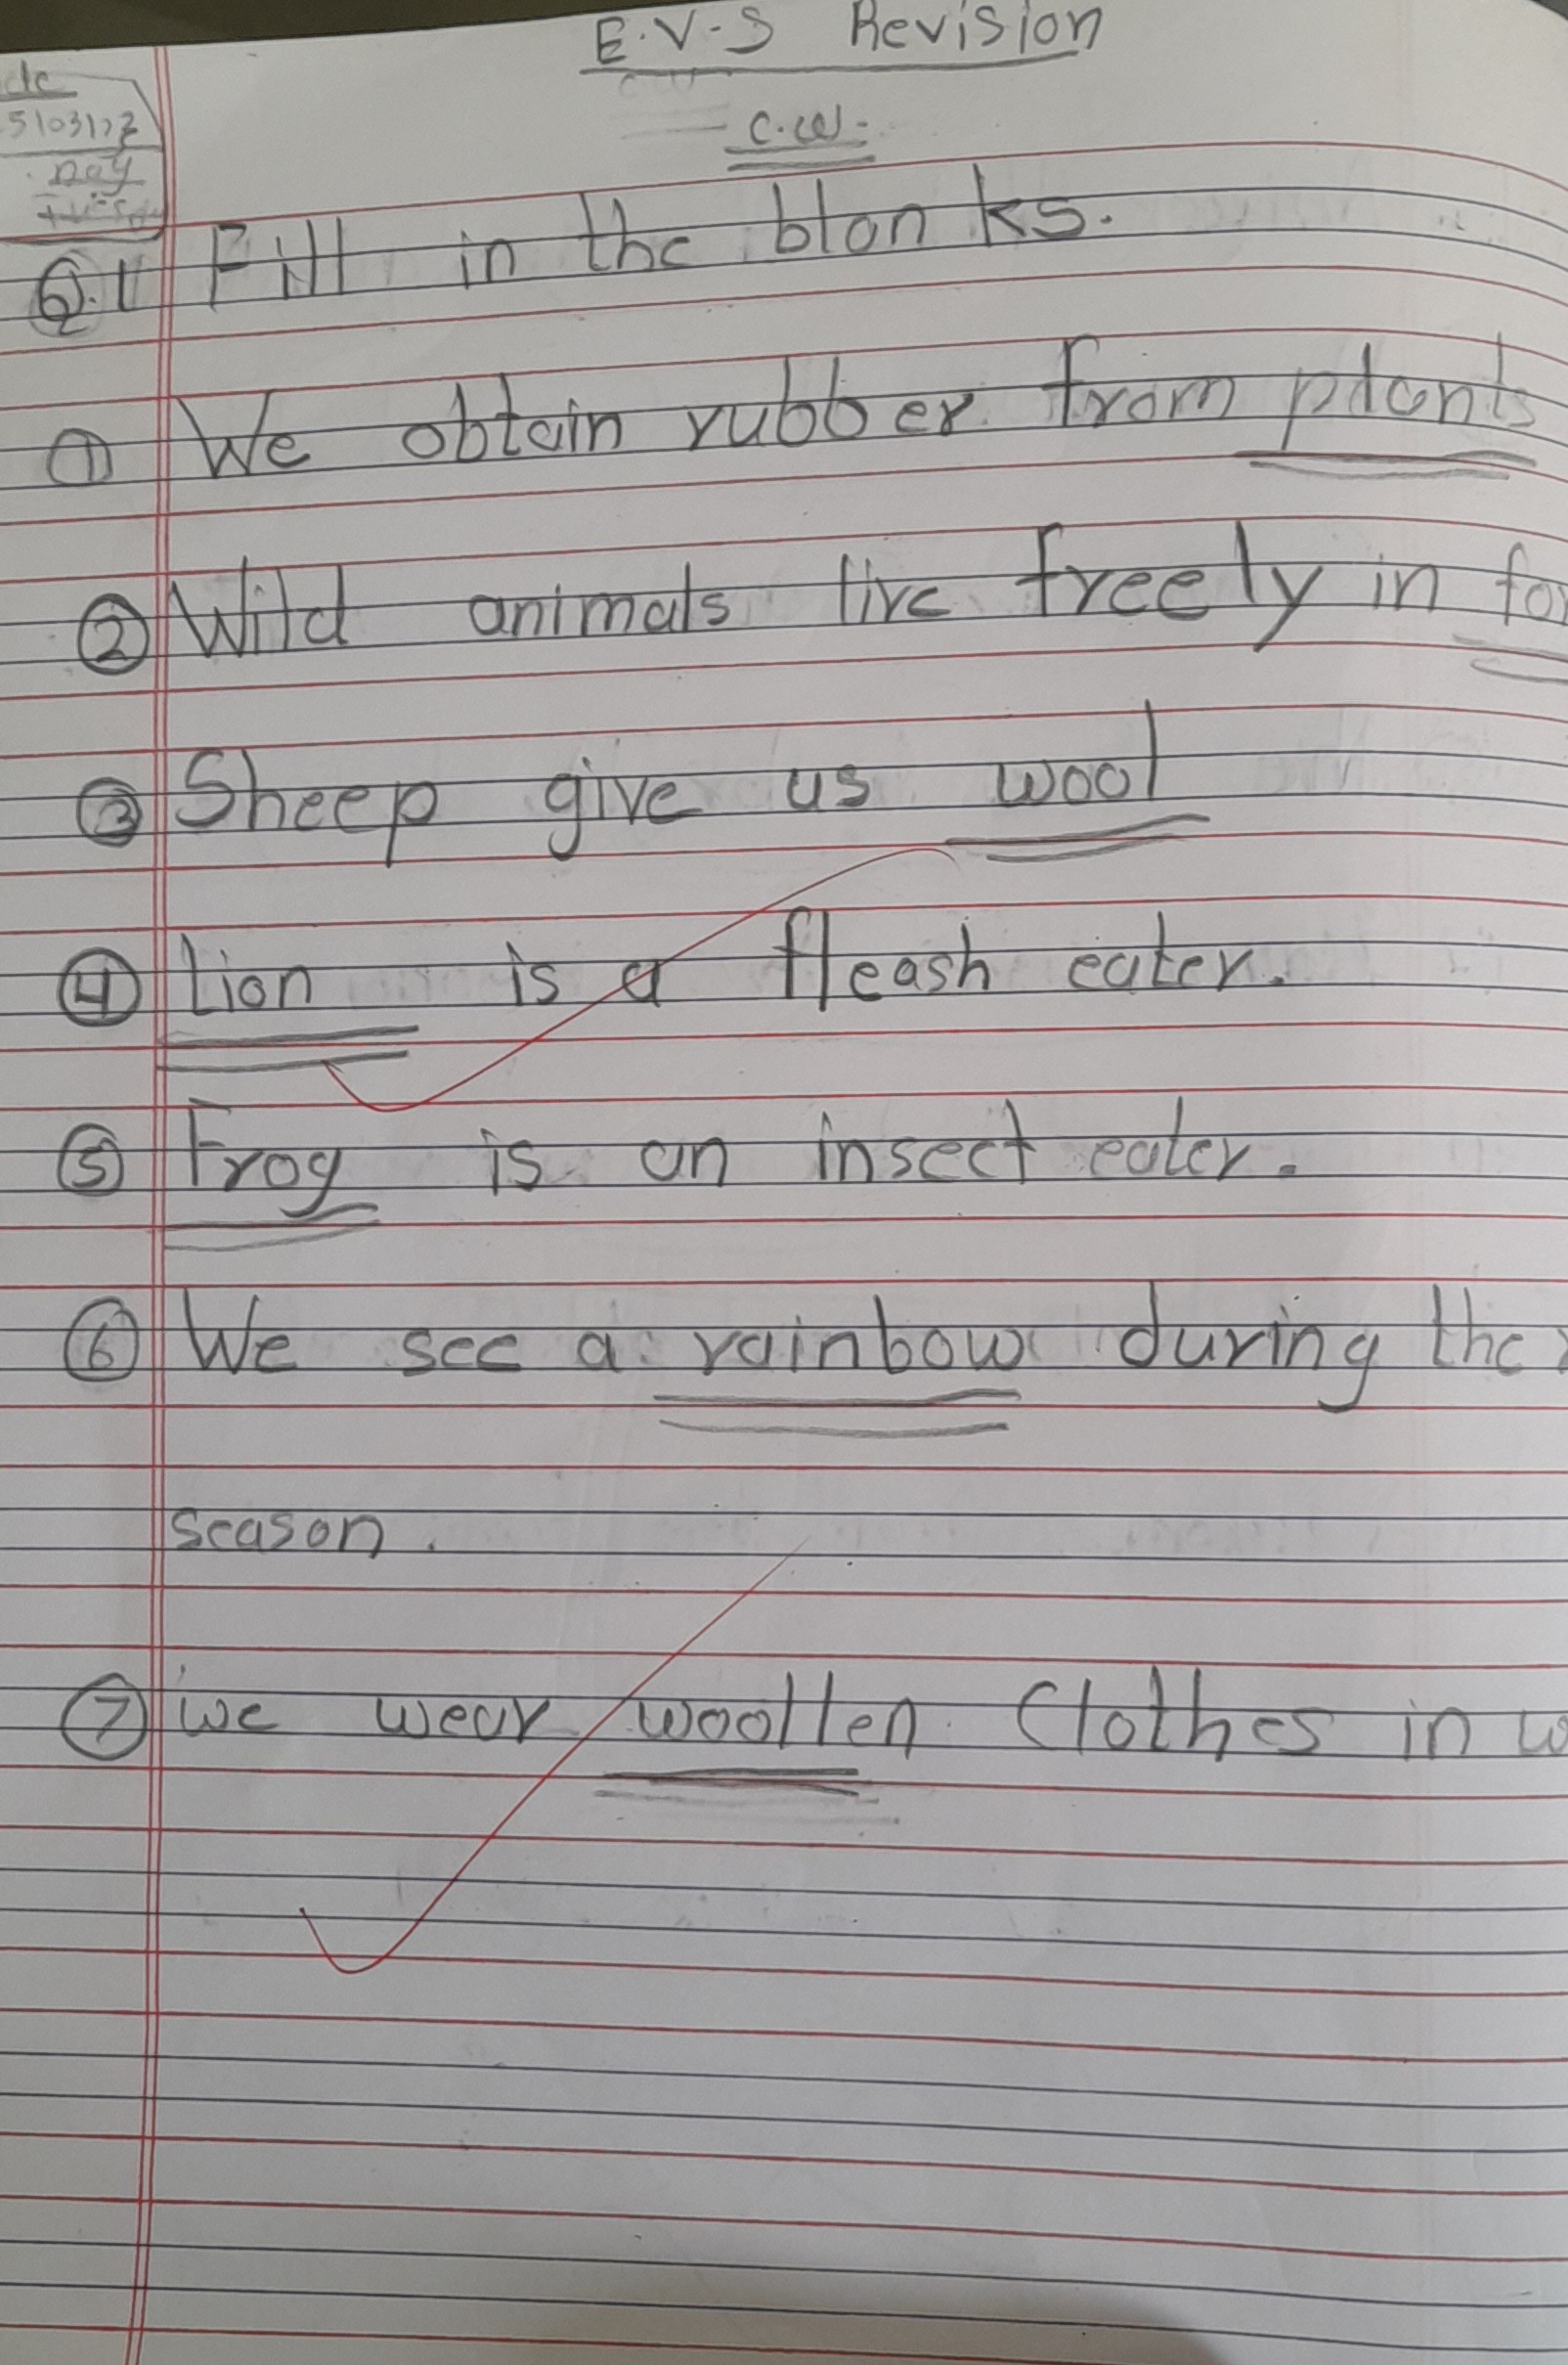 E.V-S Revision
C.W.
Day
Q.1 Fill in the blanks.
① We obtain rubber from plants
② Wild animals live freely in
③ Sheep give us wool
④ Lion is a fleash eater.
⑤ Frog is an insect eater.
⑥ We see a rainbow during the
season.
⑦ we wear woollen Clothes in